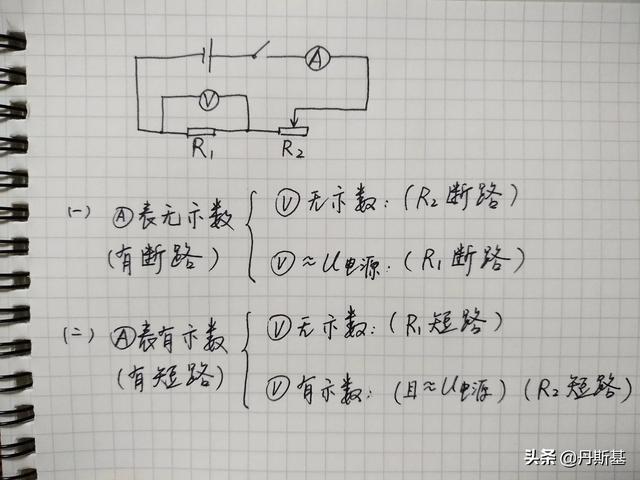 A
V
R₁ R₂
(一) Ⓐ表无示数 { Ⓥ无示数：(R₂断路)
(有断路) Ⓥ≈U电源：(R₁断路)
(二) Ⓐ表有示数 { Ⓥ无示数：(R₁短路)
(有短路) Ⓥ有示数：(且≈U电源) (R₂短路)
头条 @丹斯基